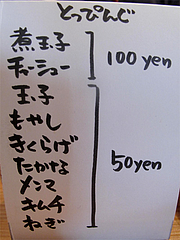 とっぴんぐ
煮玉子
チャーシュー
100 yen
玉子
もやし
きくらげ
たかな
メンマ
キムチ
ねぎ
50yen